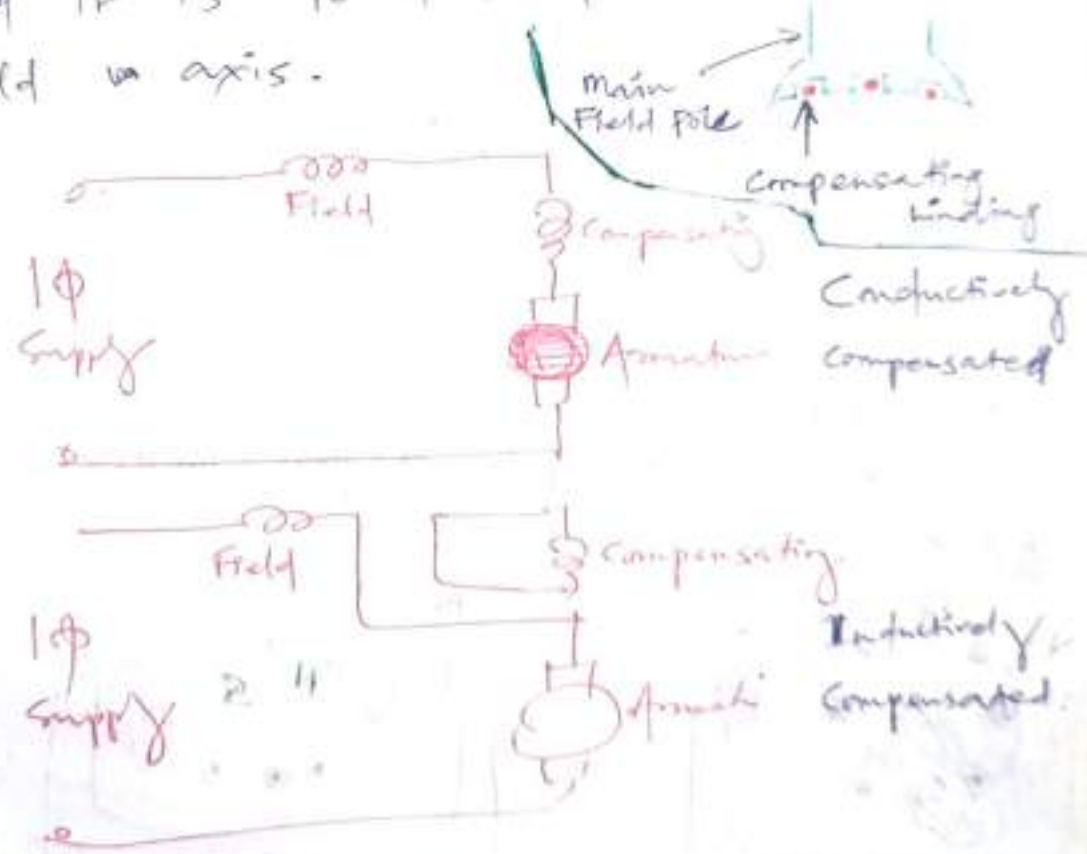 it is
axis.
Main
Field Pole
Compensating
winding
Field
Compensating
1φ
Supply
Armature
Conductively
Compensated
Field
Compensating.
1φ
Supply
Inductively
Compensated.